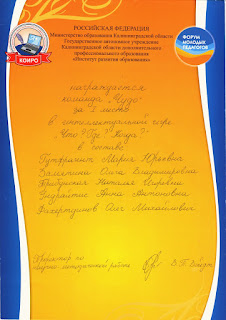 КОИРО
РОССИЙСКАЯ ФЕДЕРАЦИЯ
Министерство образования Калининградской области
Государственное автономное учреждение
Калининградской области дополнительного
профессионального образования
«Институт развития образования»
ФОРУМ
МОЛОДЫХ
ПЕДАГОГОВ
награждается
команда "Чудо"
за I место
в интеллектуальной игре
"Что? Где? Когда?"
в составе:
Мария Юрьевна
Ольга Владимировна
Наталья Игоревна
Анна Антоновна
Олег Михайлович
Проректор по
научно-методической работе
В.П. Вейдт